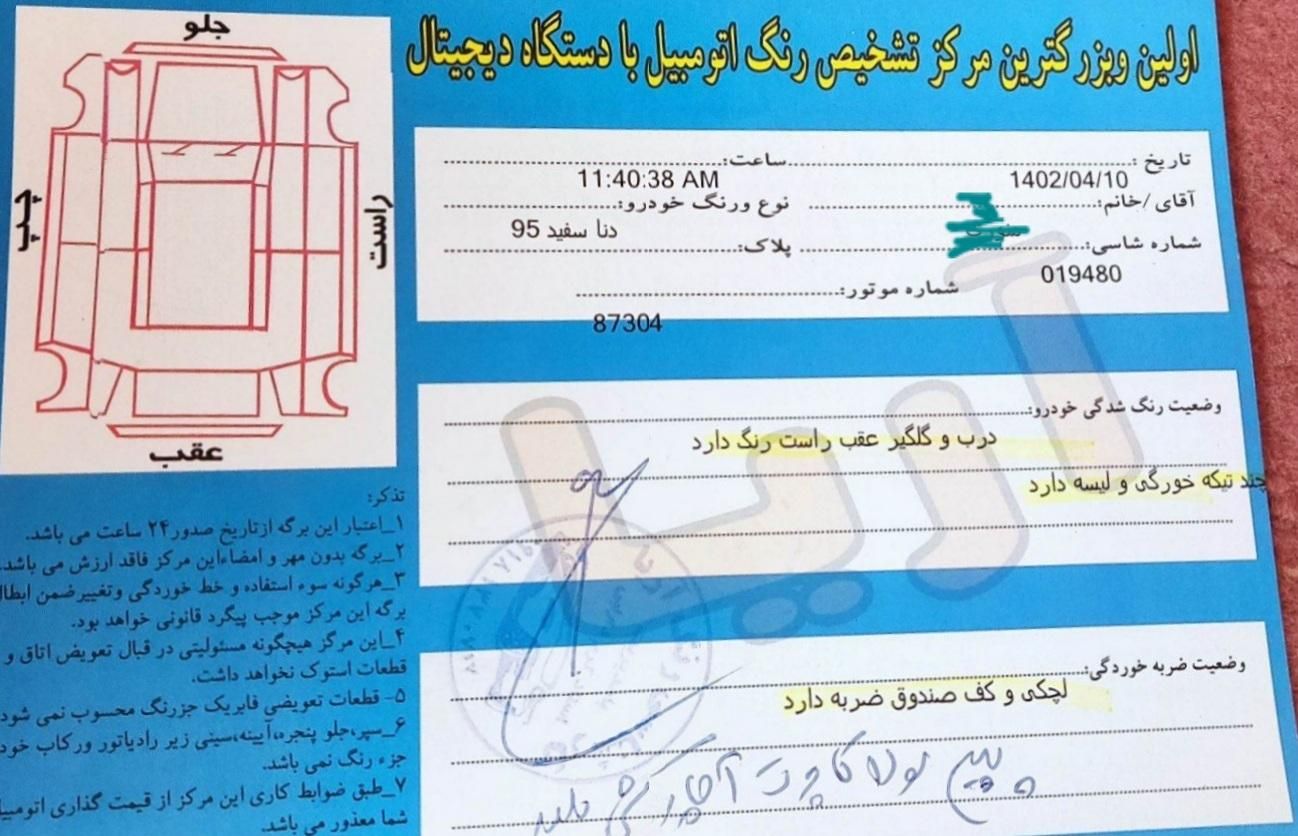 اولین وبزرگترین مرکز تشخیص رنگ اتومبیل با دستگاه دیجیتال
تاریخ: ساعت:
1402/04/10 11:40:38 AM
آقای/خانم: نوع ورنگ خودرو:
دنا سفید 95
شماره شاسی: پلاک:
019480
شماره موتور:
87304
وضعیت رنگ شدگی خودرو:
درب و گلگیر عقب راست رنگ دارد
چند تیکه خورگی و لیسه دارد
وضعیت ضربه خوردگی:
لچکی و کف صندوق ضربه دارد
آریا
جلو
چپ
راست
عقب
تذکر:
۱_اعتبار این برگه ازتاریخ صدور۲۴ ساعت می باشد.
۲_برگه بدون مهر و امضاءاین مرکز فاقد ارزش می باشد.
۳_هرگونه سوء استفاده و خط خوردگی وتغییرضمن ابطال
برگه این مرکز موجب پیگرد قانونی خواهد بود.
۴_این مرکز هیچگونه مسئولیتی در قبال تعویض اتاق و
قطعات استوک نخواهد داشت.
۵- قطعات تعویضی فابریک جزرنگ محسوب نمی شود
۶_سپر،جلو پنجره،آیینه،سینی زیر رادیاتور ورکاب خود
جزء رنگ نمی باشد.
۷_طبق ضوابط کاری این مرکز از قیمت گذاری اتومبیل
شما معذور می باشد.